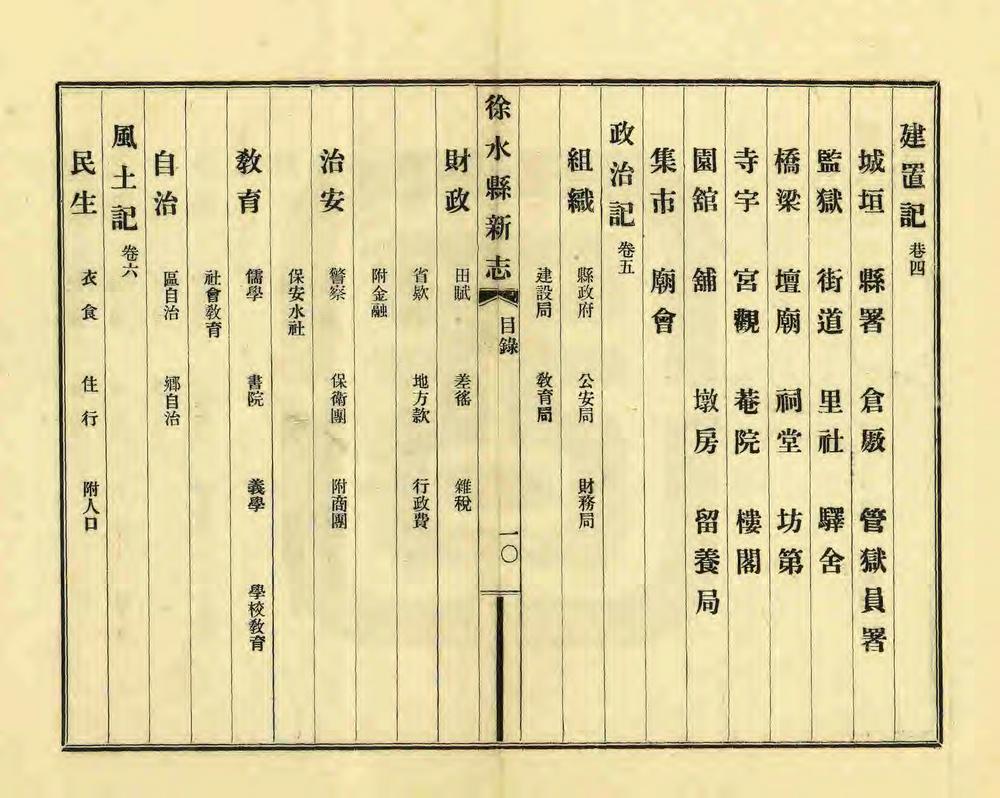 建置記 卷四
城垣 縣署 倉厫 管獄員署
監獄 街道 里社 驛舍
橋梁 壇廟 祠堂 坊第
寺宇 宮觀 菴院 樓閣
園舘 舖 墩房 留養局
集市 廟會
政治記 卷五
組織 縣政府 公安局 財務局
建設局 教育局
徐水縣新志 目錄 一〇
財政 田賦 差徭 雜稅
省欵 地方款 行政費
附金融
治安 警察 保衛團 附商團
保安水社
敎育 儒學 書院 義學 學校敎育
社會敎育
自治 區自治 鄉自治
風土記 卷六
民生 衣食 住行 附人口